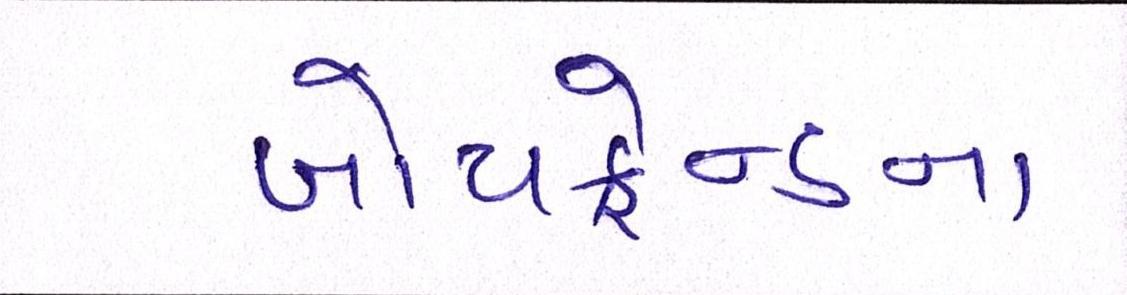 બોયફ્રેન્ડના